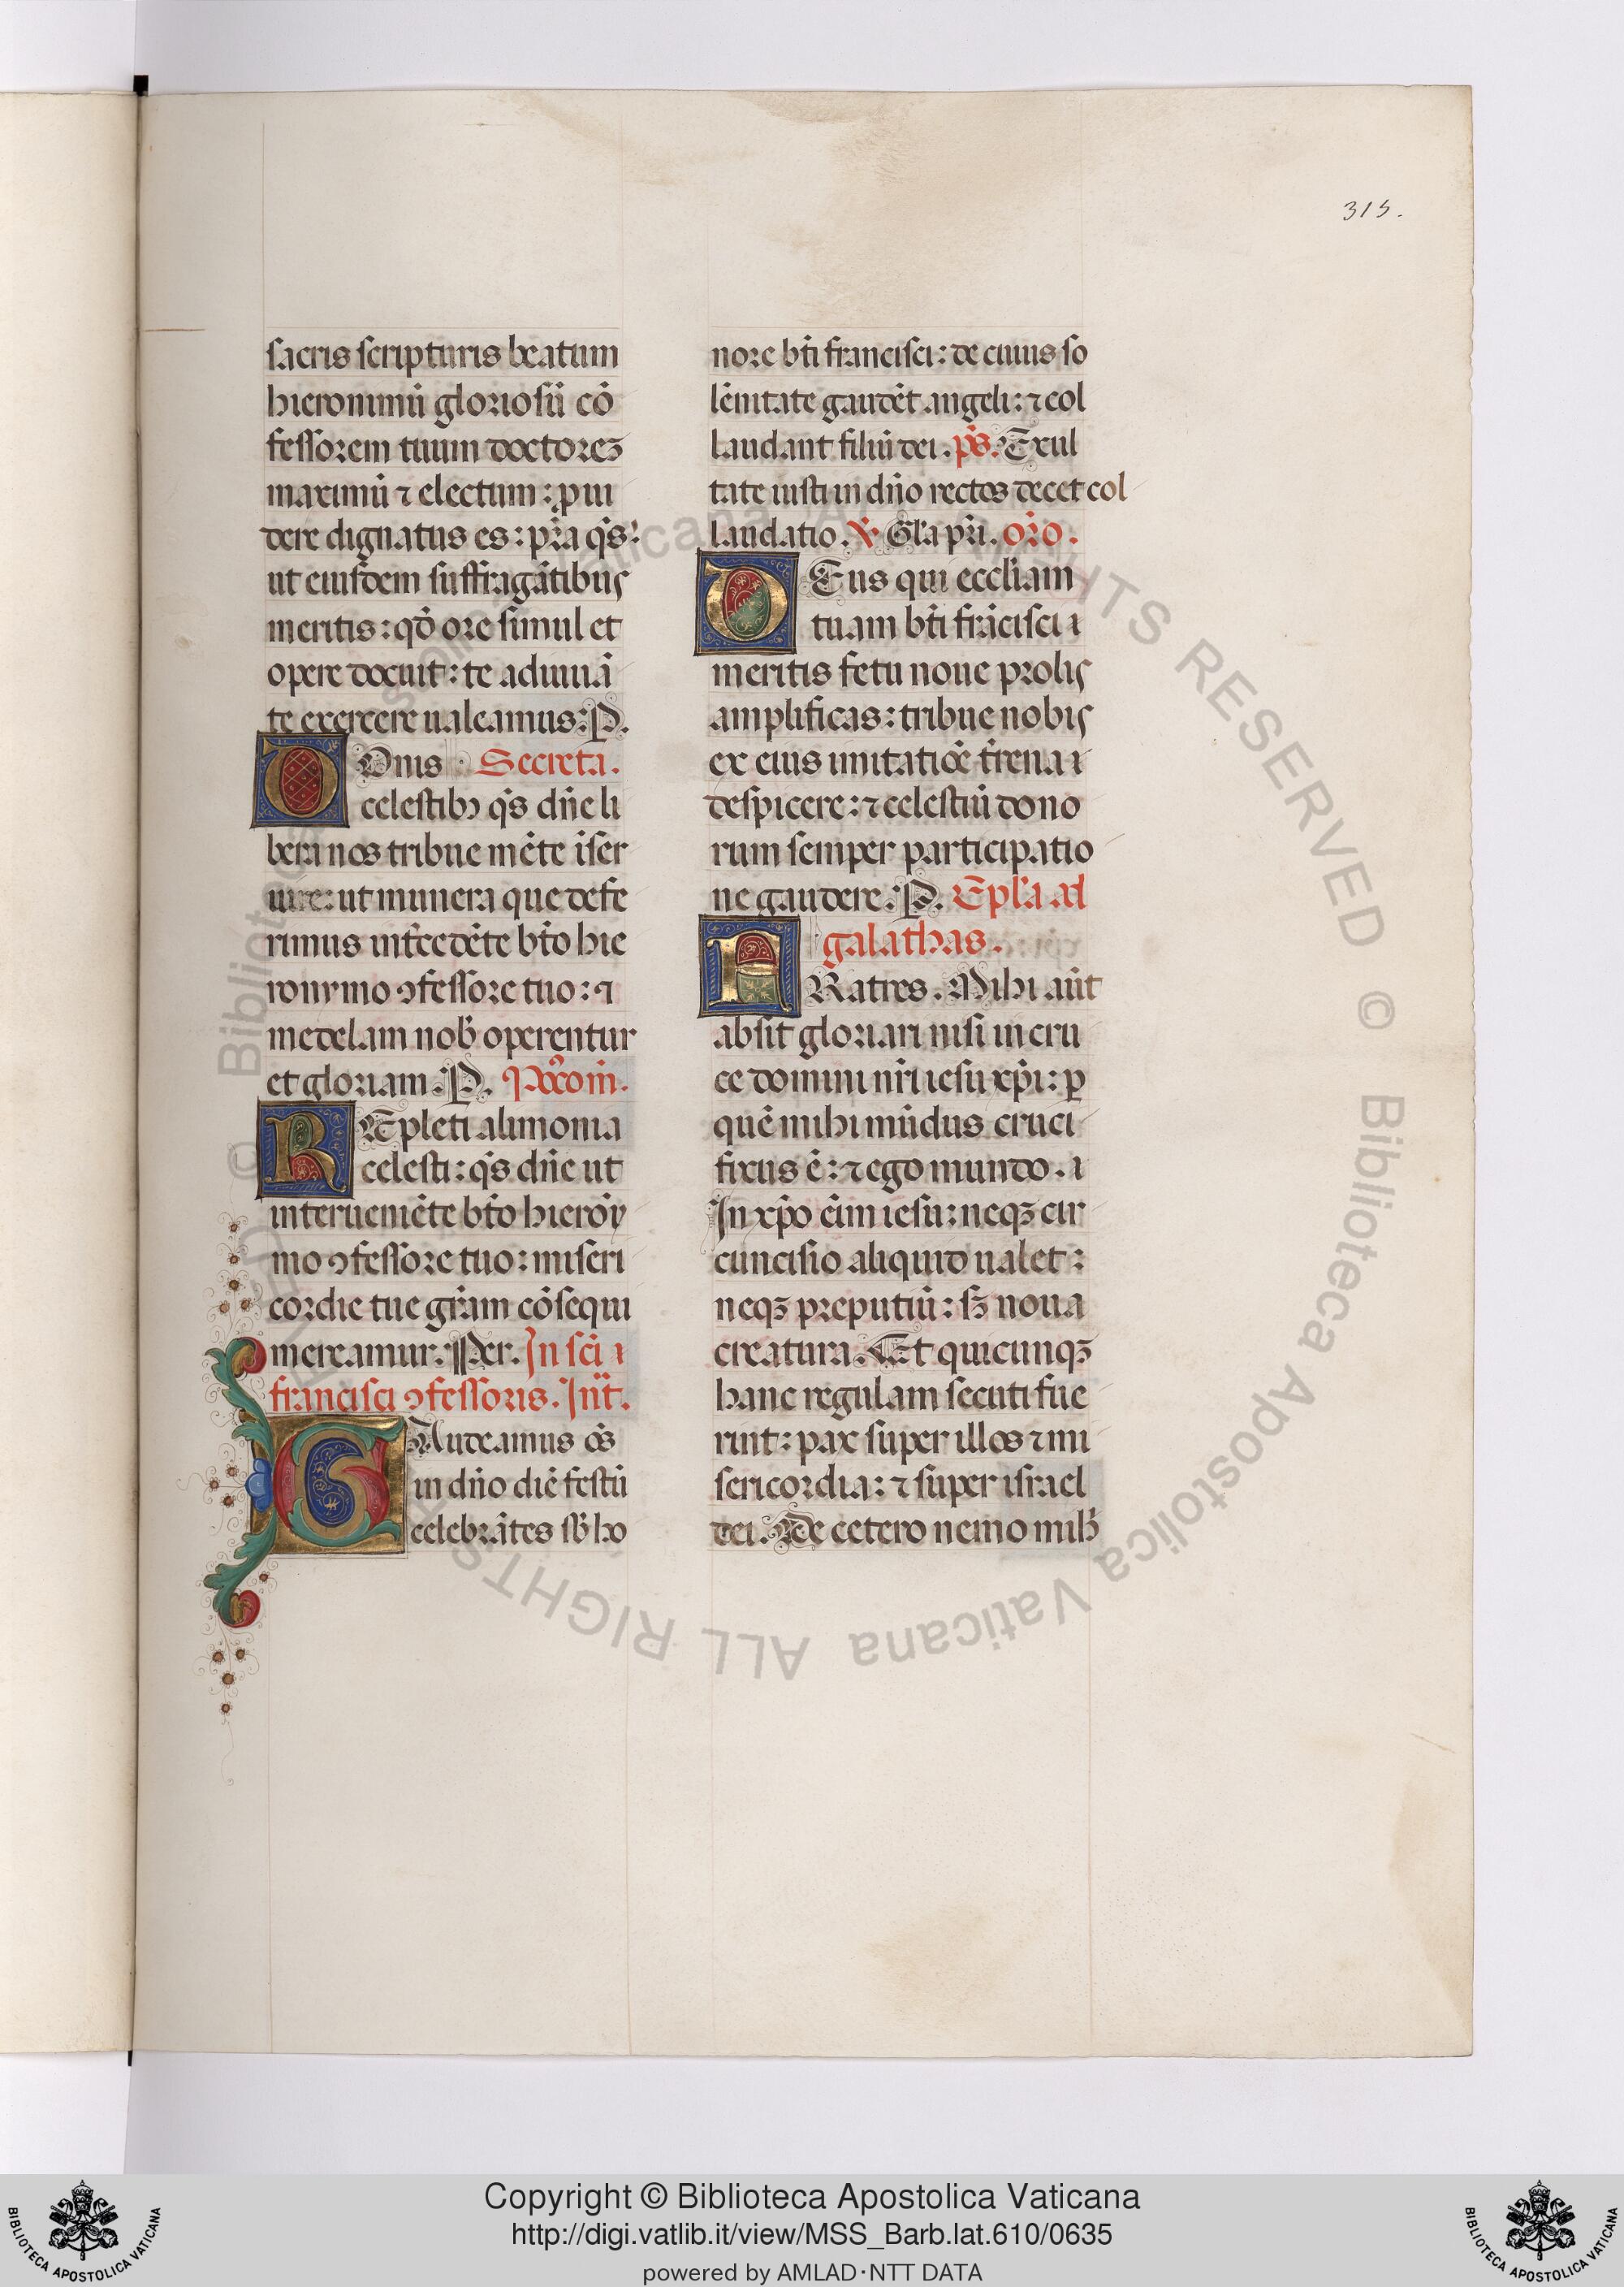 315.
sacris scripturis beatum
hieronimū gloriosū cō
fessorem tuum doctorez
maximū ⁊ electum: ꝓui
dere dignatus es: pr̄a q̄s:
ut eiusdem suffragātibus
meritis: qđ ore simul et
opere docuit: te adiuuā
te exercere ualeamus: P.
DOnis Secreta.
celestibꝫ q̄s dn̄e li
bera nos tribue mēte īser
uire: ut munera que defe
rimus int̄cedēte bt̄o hie
ronymo ꝯfessore tuo: ⁊
medelam nob̄ operentur
et gloriam. P. Pꝰcom̄.
REpleti alimonia
celesti: q̄s dn̄e ut
interueniēte bt̄o hierōy
mo ꝯfessore tuo: miseri
cordie tue gr̄am cōsequi
mereamur. Per. In sc̄i
francisci ꝯfessoris. Int̄.
GAudeamus ōs
in dn̄o diē festū
celebrātes sb̄ ho
nore bt̄i francisci: de cuius so
lēnitate gaudēt angeli: ⁊ col
laudant filiū dei. p̄s. Exul
tate iusti in dn̄o rectos decet col
laudatio. ℣ Gl̄a pr̄i. or̄o.
DEus qui eccl̄iam
tuam bt̄i frācisci
meritis fetu noue prolis
amplificas: tribue nobis
ex eius imitatiōe t̄rena
despicere: ⁊ celestiū dono
rum semper participatio
ne gaudere. P. Ep̄la ad
galathas.
FRatres. Mihi aūt
absit gloriari nisi in cru
ce domini nr̄i iesu xp̄i: ꝑ
quē mihi mūdus cruci
fixus ē: ⁊ ego mundo.
In xp̄o eīm iesu: neqꝫ cir
cuncisio aliquid ualet:
neqꝫ preputiū: sꝫ noua
creatura. Et quicunqꝫ
hanc regulam secuti fue
rint: pax super illos ⁊ mi
sericordia: ⁊ super israel
dei. De cetero nemo mih̄
© Biblioteca Apostolica Vaticana ALL RIGHTS RESERVED
© Biblioteca Apostolica Vaticana ALL RIGHTS RESERVED
Copyright © Biblioteca Apostolica Vaticana
http://digi.vatlib.it/view/MSS_Barb.lat.610/0635
powered by AMLAD·NTT DATA
BIBLIOTECA APOSTOLICA VATICANA
BIBLIOTECA APOSTOLICA VATICANA